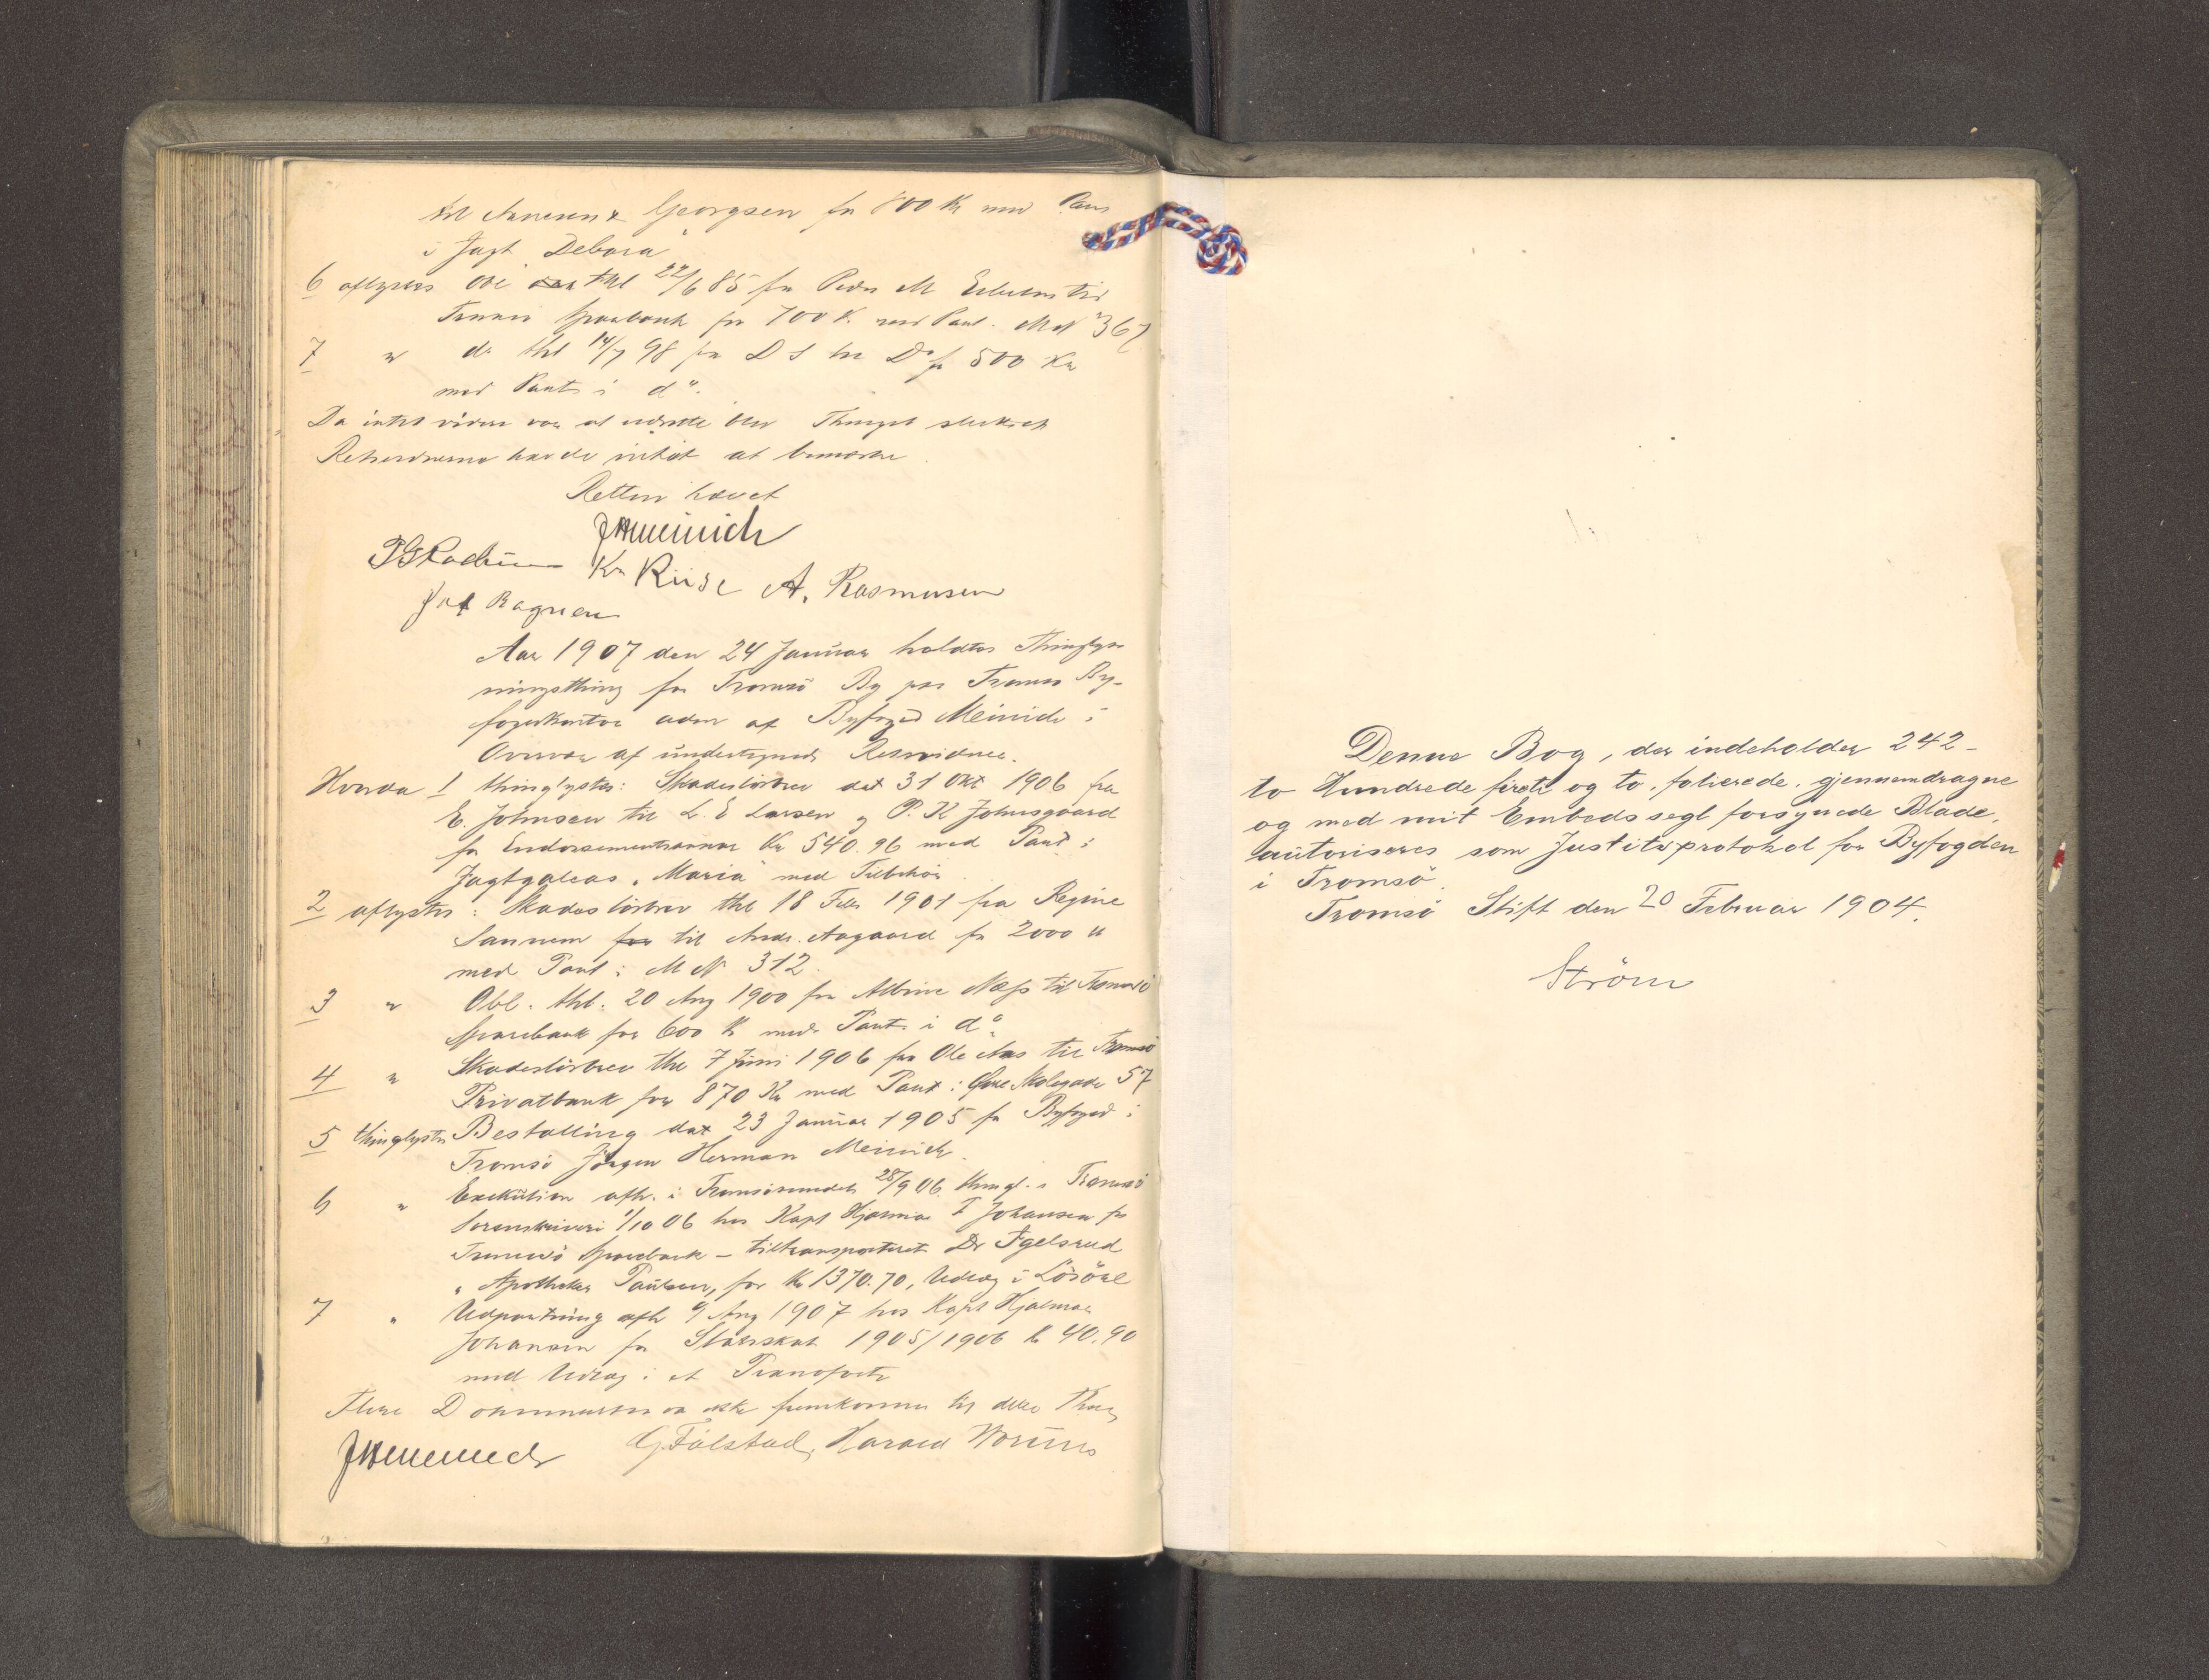 til & Georgsen for 800 Kr med Pant
i Jagt "Debora"
6 aflystes Obl thl 22/6 85 fra Peder M til
Tromsø Sparebank for 700 K. med Pant. M N 367
7 " do thl 14/7 98 fra D S til Do for 500 Kr
med Pant i do.
Da intet videre var at udrette blev Thinget sluttet
Retsvidnerne havde intet at bemærke
Retten hævet
JHMeinich
Kr Riise A. Rasmusen
Ragnen
Aar 1907 den 24 Januar holdtes Thinglys
ningsthing for Tromsö By paa Tromsö By-
fogedkontor adm af Byfoged Meinich i
Overvær af undertegnede Retsvidner.
Hvorda 1 thinglystes: Skadeslösbrev dat 31 Okt 1906 fra
E. Johnsen til L. E Larsen og P. K Johnsgaard
for Endossementsansvar Kr 540.96 med Pant i
Jagtgaleas "Maria" med Tilbehör
2 aflystes: Skadeslösbrev thl 18 Febr 1901 fra Regine
Sannem for til Andr. Aagaard for 2000 Kr
med Pant i M N 312.
3 " Obl. thl. 20 Aug 1900 fra Albine Næss til Tromsö
Sparebank for 600 Kr med Pant i do.
4 " Skadeslösbrev thl 7 Juni 1906 fra Ole Aas til Tromsö
Privatbank for 870 Kr med Pant i Skolegade 57
5 thinglystes Bestalling dat 23 Januar 1905 for Byfoged i
Tromsö Jörgen Herman Meinich.
6 " Exekution afh. i Tromsösundet 28/9 06 thingl. i Tromsö
Sorenskriveri 1/10 06 hos Kapt Hjalmar F Johansen for
Tromsö Sparebank - tiltransporteret Dr Egelsrud
" Apotheker Paulsen, for Kr 1370.70, Udlæg i Lösöre
7 " Udpantning afh 9 Aug 1907 hos Kapt Hjalmar
Johansen for Statsskat 1905/1906 Kr 40.90
med Udlæg i et Pianoforte
Flere Dokumenter var ikke fremkomne til dette Thing
JHMeinich G. Falstad, Harald
Denne Bog, der indeholder 242-
to Hundrede firti og to, folierede, gjennemdragne
og med mit Embedssegl forsynede Blade,
autoriseres som Justitsprotokol for Byfogden
i Tromsö.
Tromsö Stift den 20 Februar 1904.
Ström